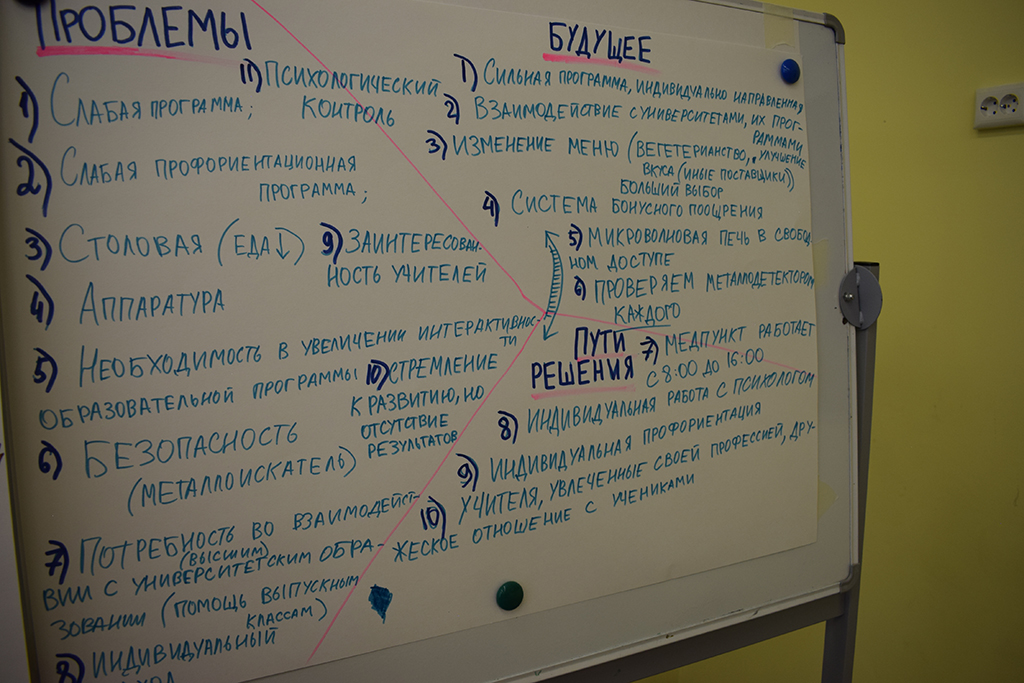 ПРОБЛЕМЫ
1) СЛАБАЯ ПРОГРАММА;
2) СЛАБАЯ ПРОФОРИЕНТАЦИОННАЯ
ПРОГРАММА;
3) СТОЛОВАЯ (ЕДА↓)
4) АППАРАТУРА
5) НЕОБХОДИМОСТЬ В УВЕЛИЧЕНИИ ИНТЕРАКТИВНОС-
ТИ
ОБРАЗОВАТЕЛЬНОЙ ПРОГРАММЫ
6) БЕЗОПАСНОСТЬ
(МЕТАЛЛОИСКАТЕЛЬ)
7) ПОТРЕБНОСТЬ ВО ВЗАИМОДЕЙСТ-
ВИИ С УНИВЕРСИТЕТСКИМ (ВЫСШИМ) ОБРА-
ЗОВАНИИ (ПОМОЩЬ ВЫПУСКНЫМ
КЛАССАМ)
8) ИНДИВИДУАЛЬНЫЙ
9) ЗАИНТЕРЕСОВАН-
НОСТЬ УЧИТЕЛЕЙ
10) СТРЕМЛЕНИЕ
К РАЗВИТИЮ, НО
ОТСУТСТВИЕ
РЕЗУЛЬТАТОВ
11) ПСИХОЛОГИЧЕСКИЙ
КОНТРОЛЬ
БУДУЩЕЕ
1) СИЛЬНАЯ ПРОГРАММА, ИНДИВИДУАЛЬНО НАПРАВЛЕННАЯ
2) ВЗАИМОДЕЙСТВИЕ С УНИВЕРСИТЕТАМИ, ИХ ПРОГ-
РАММАМИ
3) ИЗМЕНЕНИЕ МЕНЮ (ВЕГЕТЕРИАНСТВО, УЛУЧШЕНИЕ
ВКУСА (ИНЫЕ ПОСТАВЩИКИ))
БОЛЬШИЙ ВЫБОР
4) СИСТЕМА БОНУСНОГО ПООЩРЕНИЯ
5) МИКРОВОЛНОВАЯ ПЕЧЬ В СВОБОД-
НОМ ДОСТУПЕ
6) ПРОВЕРЯЕМ МЕТАЛЛОДЕТЕКТОРОМ
КАЖДОГО
ПУТИ
РЕШЕНИЯ
7) МЕДПУНКТ РАБОТАЕТ
С 8:00 ДО 16:00
8) ИНДИВИДУАЛЬНАЯ РАБОТА С ПСИХОЛОГОМ
9) ИНДИВИДУАЛЬНАЯ ПРОФОРИЕНТАЦИЯ
10) УЧИТЕЛЯ, УВЛЕЧЕННЫЕ СВОЕЙ ПРОФЕССИЕЙ, ДРУ-
ЖЕСКОЕ ОТНОШЕНИЕ С УЧЕНИКАМИ